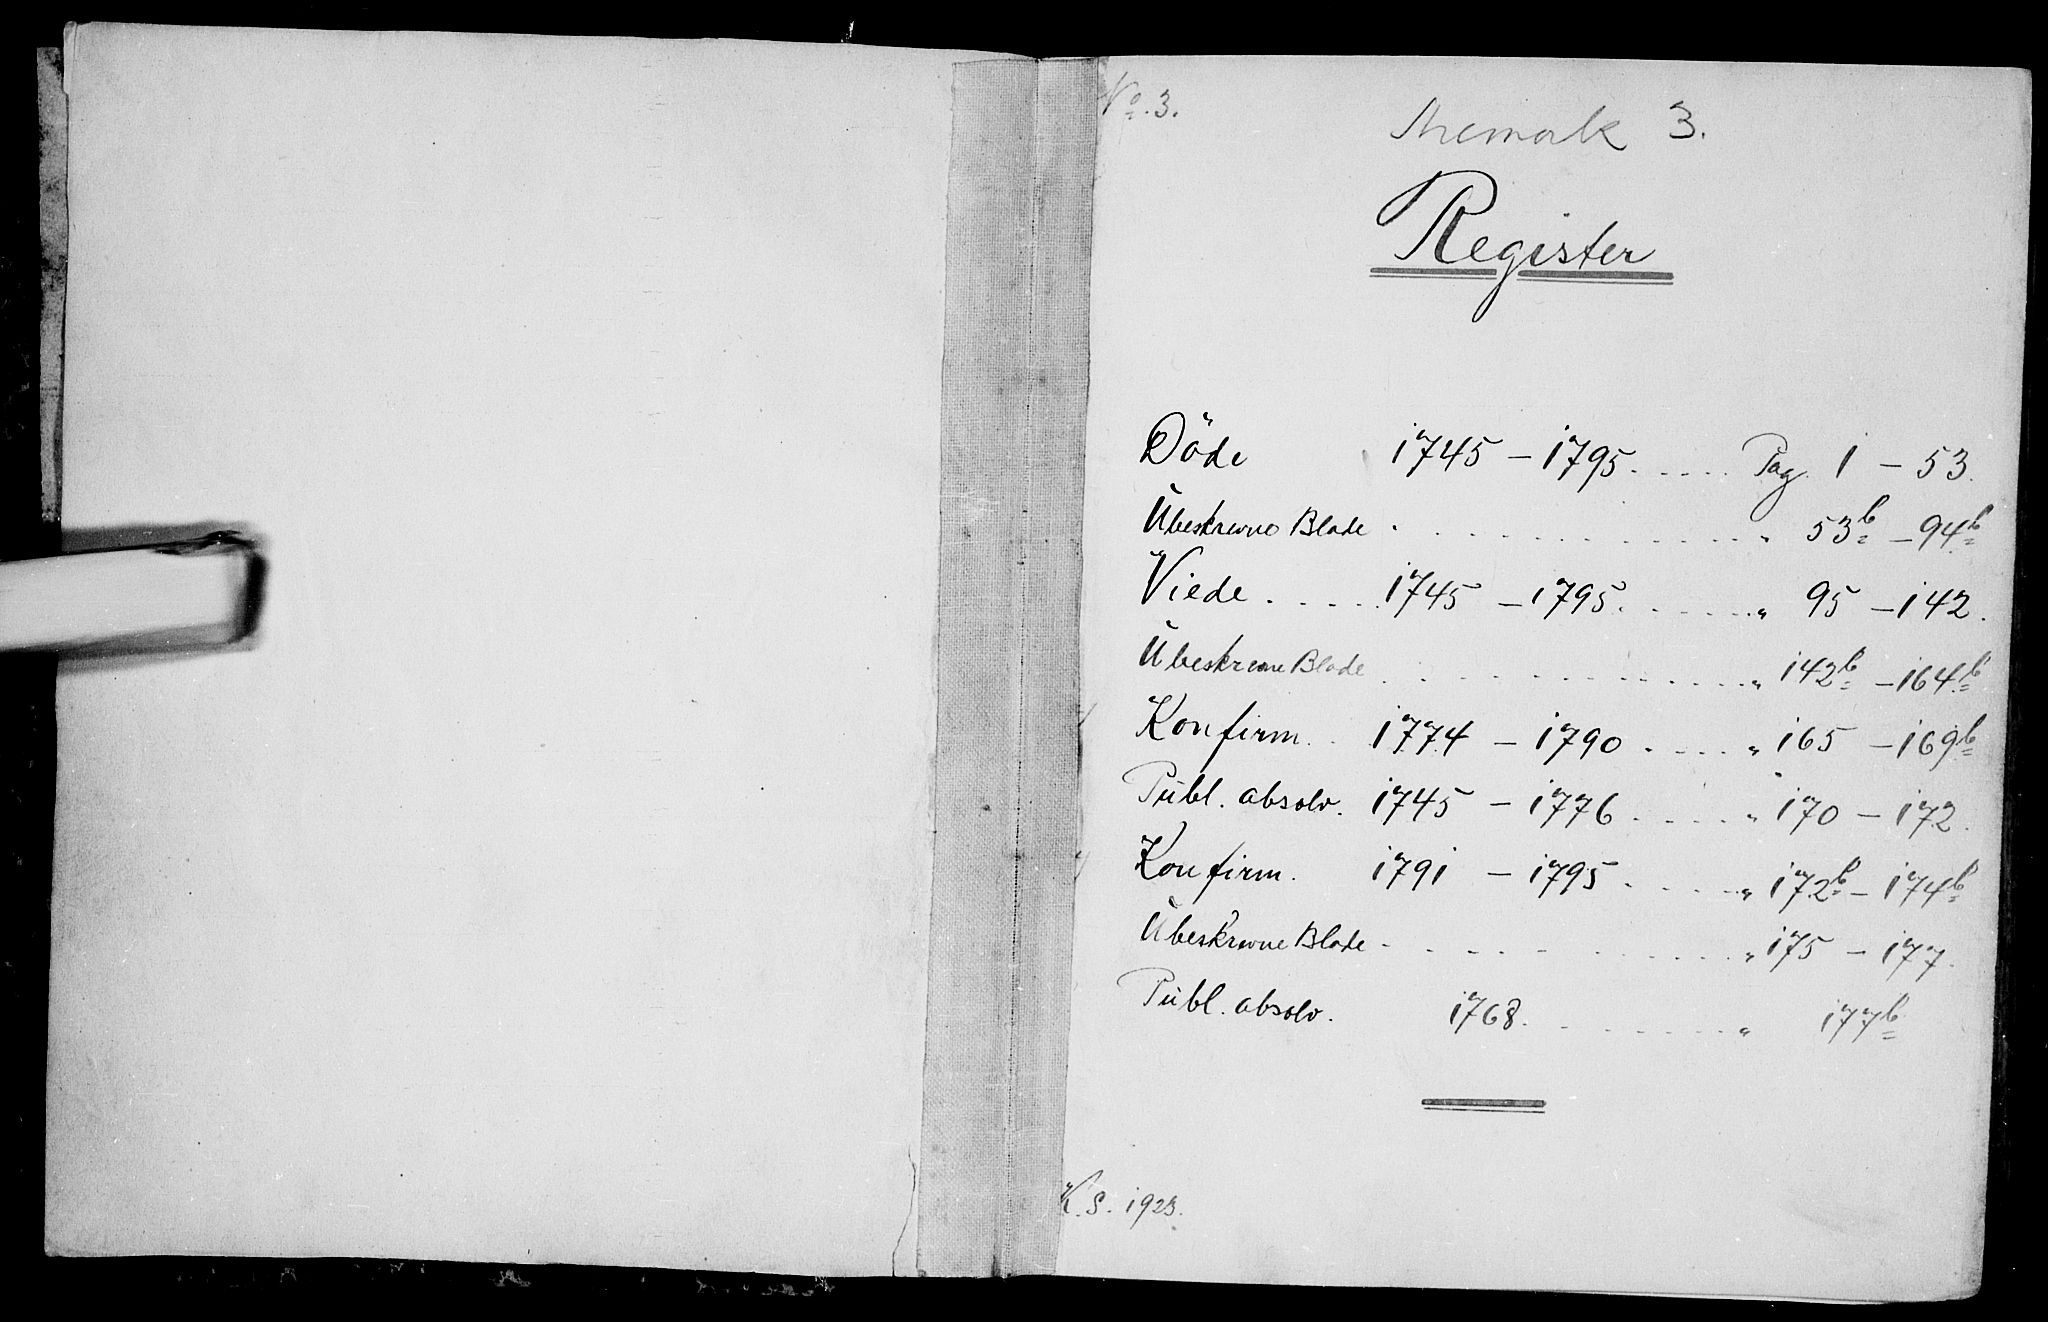 No. 3.
Aremark 3.
Register
Döde 1745 – 1795. . . . . Pag. 1 – 53.
Ubeskrevne Blade . . . . . . . . . . . „ 53b – 94b
Viede . . . . . 1745 – 1795. . . . . . „ 95 – 142.
Ubeskrevne Blade . . . . . . . . . . . „ 142b – 164b
Konfirm. . 1774 – 1790 . . . . „ 165 – 169b
Publ. absolv. 1745 – 1776 . . . . „ 170 – 172.
Konfirm. 1791 – 1795 . . . . . „ 172b – 174b
Ubeskrevne Blade . . . . . . . . . . „ 175 – 177.
Publ. absolv. 1768. . . . . . . . „ 177b
K. S. 1923.